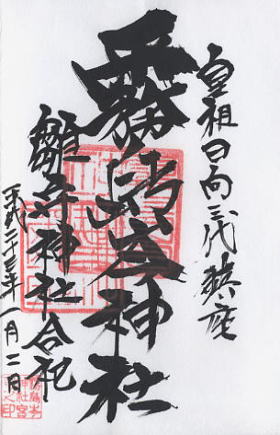 皇祖日向三代鎮座
霧嶋岑神社
雛守神社合祀
平成二十三年一月二日